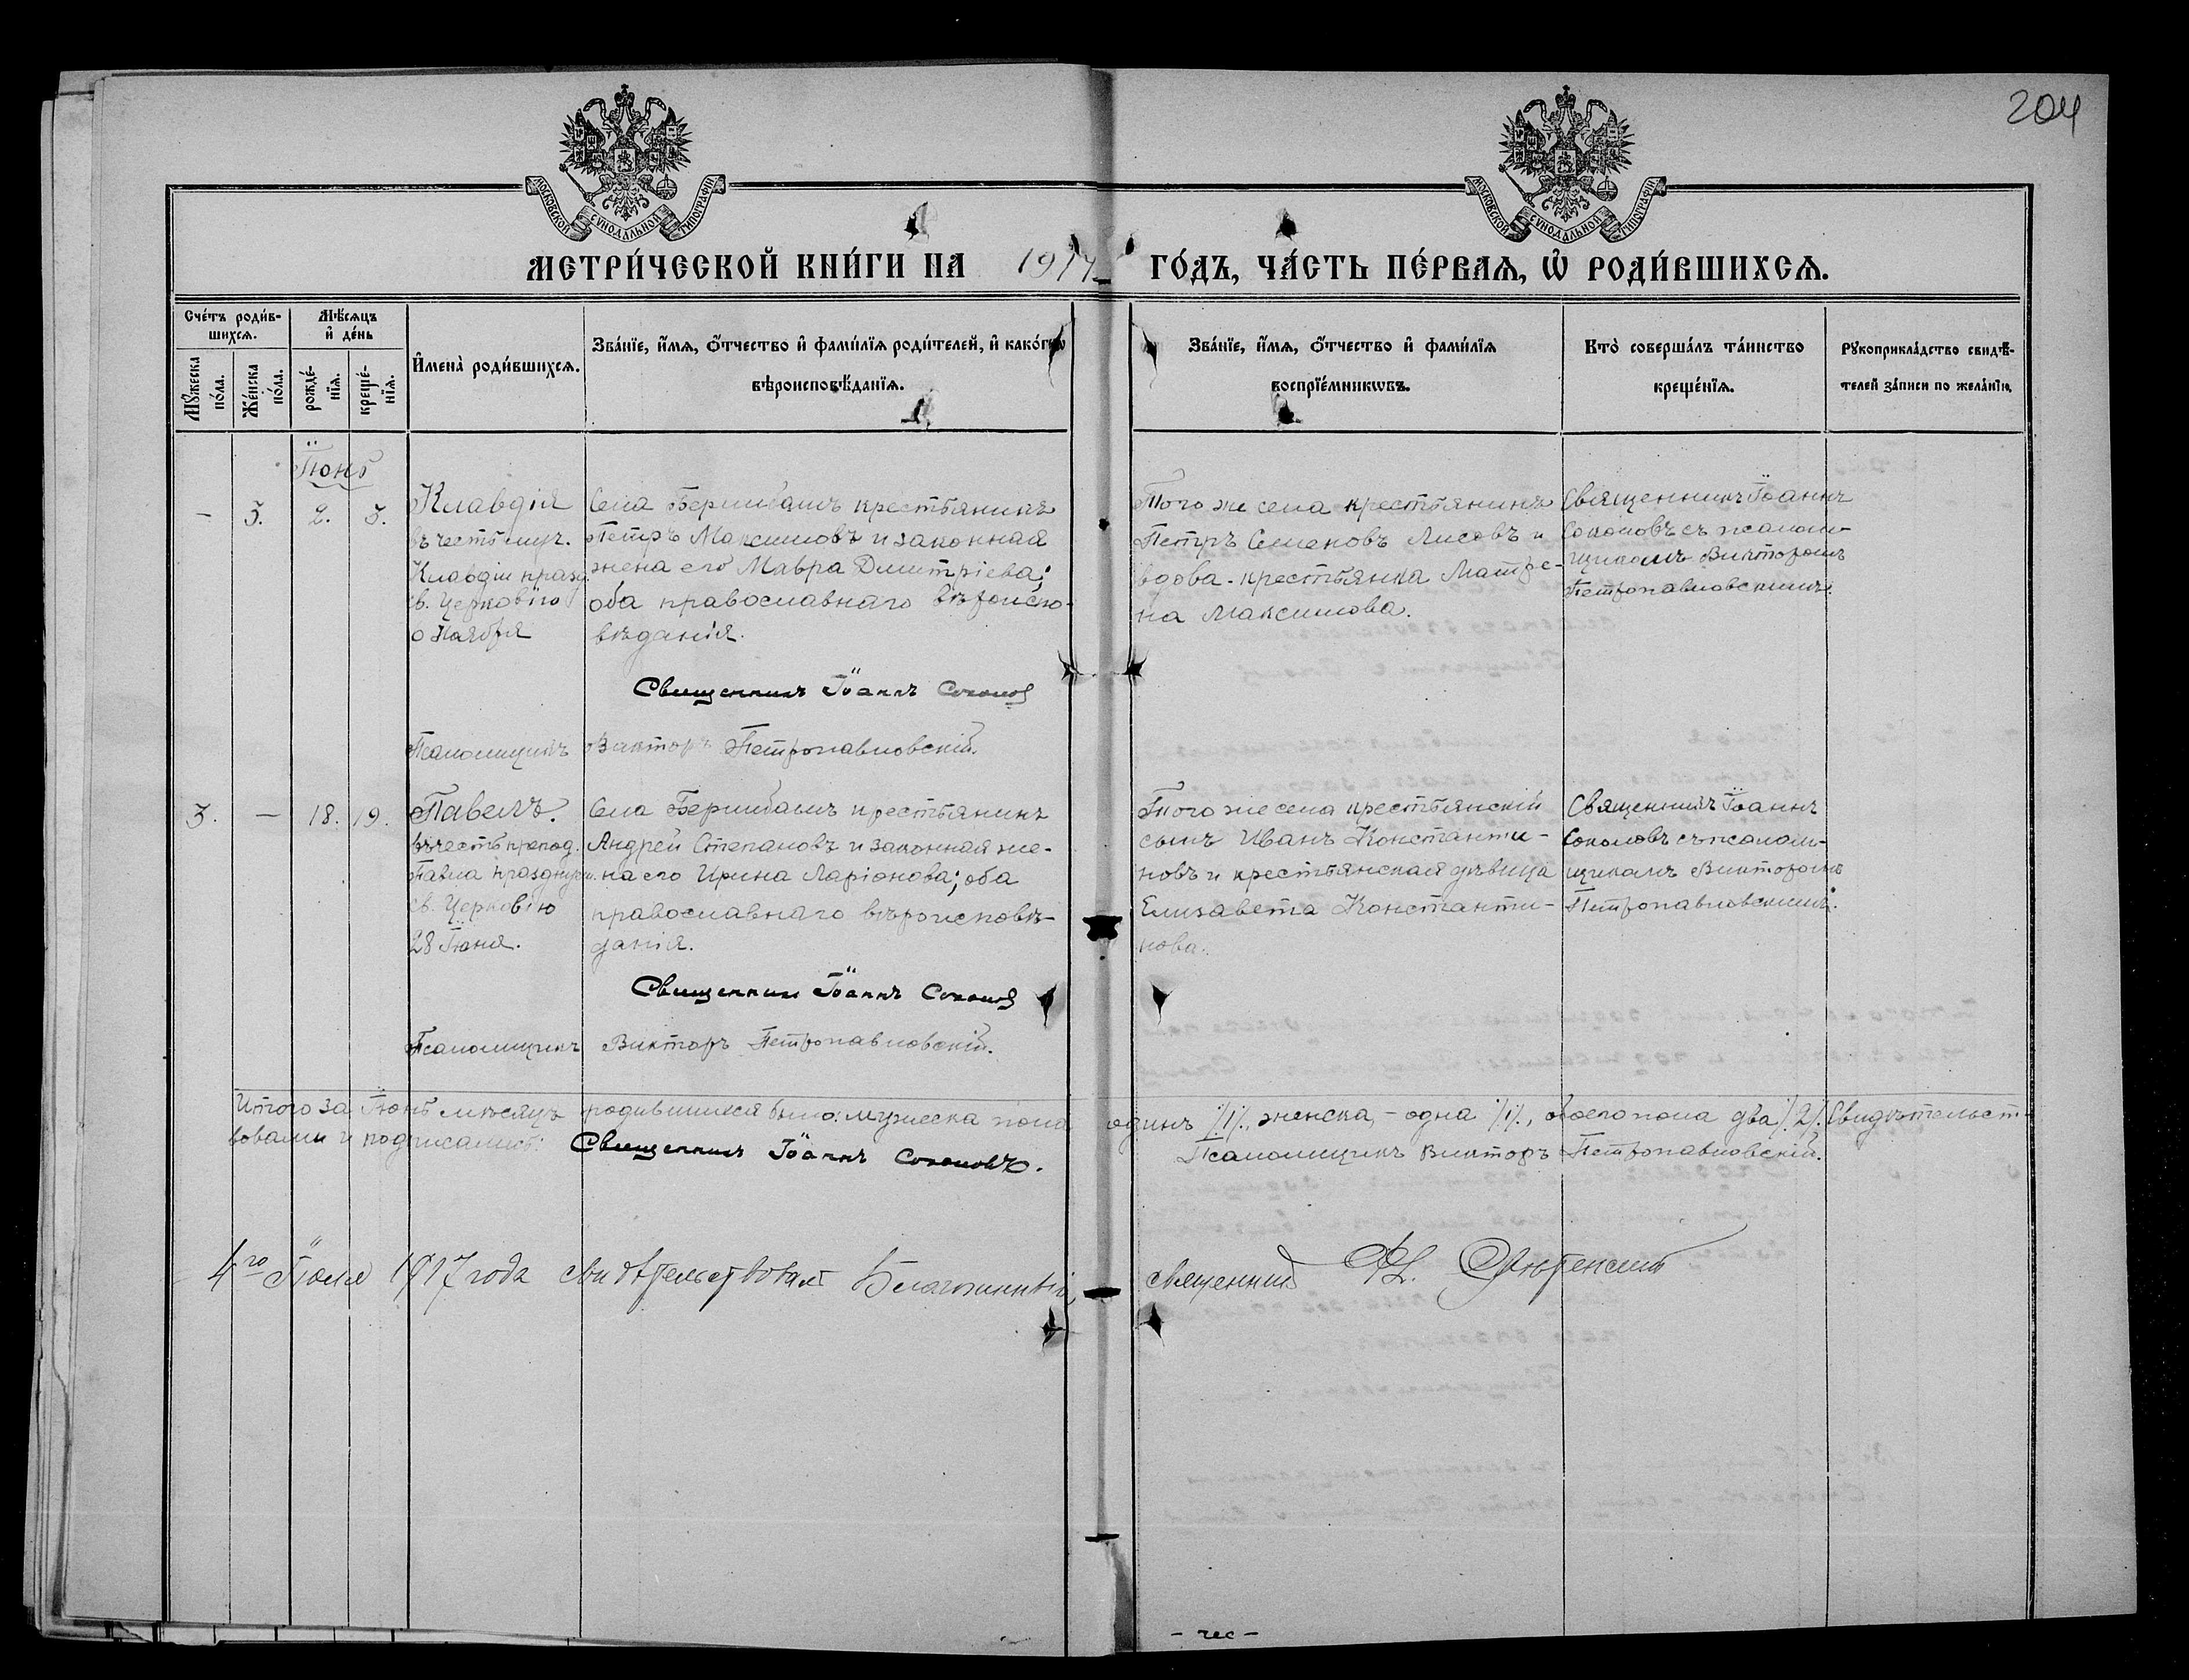 204
МОСКОВСКОЙ СѴНОДАЛЬНОЙ ТИПОГРАФІИ
МОСКОВСКОЙ СѴНОДАЛЬНОЙ ТИПОГРАФІИ
МЕТРИ́ЧЕСКОЙ КНИ́ГИ НА 1917 ГО́ДЪ, ЧА́СТЬ ПЕ́РВАѦ, Ѡ҆ РОДИ́ВШИХСѦ.
Сче́тъ роди́в-
шихсѧ.
Мꙋ́жеска по́ла.
Же́нска по́ла.
Мѣ́сѧцъ
и҆ де́нь
рожде́-
нїѧ.
креще́-
нїѧ.
И҆мена̀ роди́вшихсѧ.
Зва́нїе, и҆́мѧ, ѻ҆́тчество и҆ фами́лїѧ роди́телей, и҆ како́гѡ
вѣроисповѣ́данїѧ.
Зва́нїе, и҆́мѧ, ѻ҆́тчество и҆ фами́лїѧ
воспрїе́мникѡвъ.
Кто̀ соверша́лъ та́инство
креще́нїѧ.
Рꙋкоприкла́дство свидѣ́-
телей за́писи по жела́нїю.
Іюнь
- 3. 2. 3.
Клавдія
въ честь муч.
Клавдіи празд.
св. Церковію
Ноября
крестьянинъ
Петръ Максимовъ и законная
жена его Мавра Димитріева;
оба православнаго вѣроиспо-
вѣданія.
Того же села крестьянинъ
Петръ Семеновъ Лисовъ и
вдова-крестьянка Матре-
на Максимова.
Священникъ Іоаннъ
Соколовъ съ псалом-
щикомъ Викторомъ
Петропавловскимъ.
Священникъ Іоаннъ Соколов
Псаломщикъ Викторъ Петропавловскій.
3. — 18. 19.
Павелъ.
въ честь препод.
Павла празднуем.
св. Церковію
28 Іюня.
крестьянинъ
Андрей Степановъ и законная же-
на его Ирина Ларіонова; оба
православнаго вѣроисповѣ-
данія.
Того же села крестьянскій
сынъ Иванъ Константи-
новъ и крестьянская дѣвица
Елизавета Константи-
нова.
Священникъ Іоаннъ
Соколовъ съ псалом-
щикомъ Викторомъ
Петропавловскимъ.
Священникъ Іоаннъ Соколов
Псаломщикъ Викторъ Петропавловскій.
Итого за Іюнь мѣсяцъ родившихся было: мужеска пола одинъ /1/, женска, - одна /1/, обоего пола два /2/. Свидѣтельст-
вовали и подписались: Священникъ Іоаннъ Соколовъ. Псаломщикъ Викторъ Петропавловскій.
4го Іюля 1917 года свидѣтельствовалъ Благочинный, священникъ
- чес -